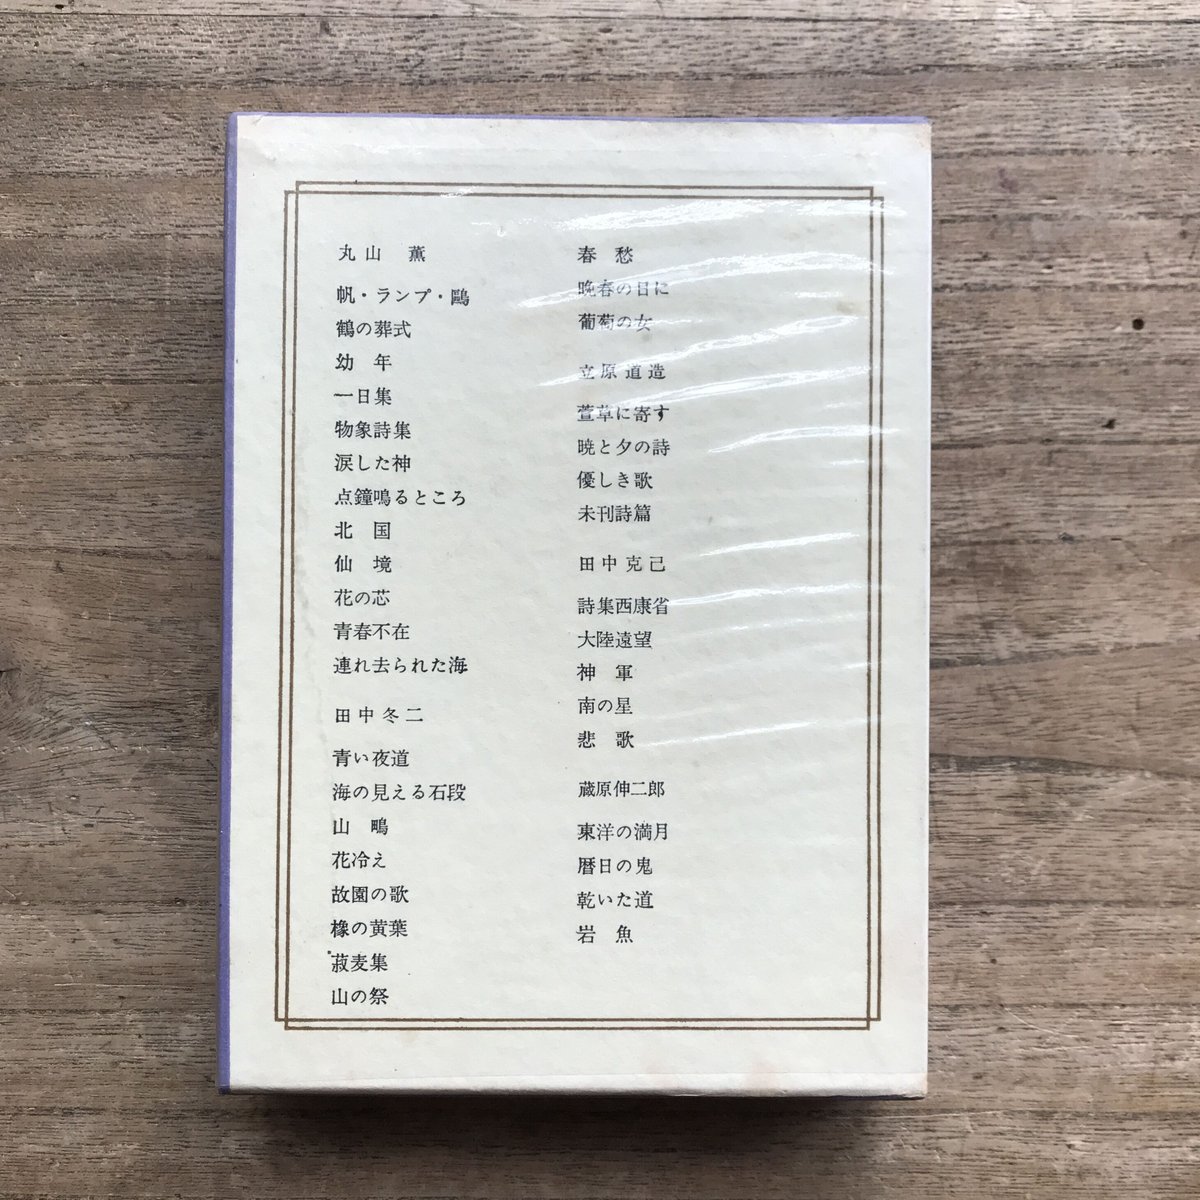 丸山 薫
帆・ランプ・鷗
鶴の葬式
幼 年
一日集
物象詩集
涙した神
点鐘鳴るところ
北 国
仙 境
花の芯
青春不在
連れ去られた海
田中冬二
青い夜道
海の見える石段
山 鴫
花冷え
故園の歌
橡の黄葉
菽麦集
山の祭
春 愁
晩春の日に
葡萄の女
立原道造
萱草に寄す
暁と夕の詩
優しき歌
未刊詩篇
田中克己
詩集西康省
大陸遠望
神 軍
南の星
悲 歌
蔵原伸二郎
東洋の満月
暦日の鬼
乾いた道
岩 魚